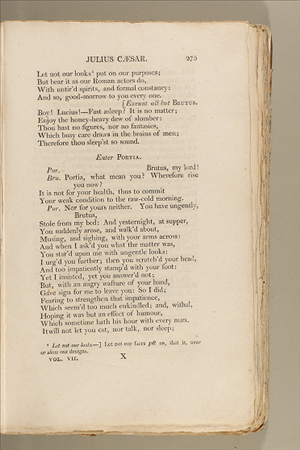 JULIUS CÆSAR. 275
Let not our looks⁴ put on our purposes;
But bear it as our Roman actors do,
With untir'd spirits, and formal constancy:
And so, good-morrow to you every one.
[Exeunt all but BRUTUS.
Boy! Lucius!—Fast asleep? It is no matter;
Enjoy the honey-heavy dew of slumber:
Thou hast no figures, nor no fantasies,
Which busy care draws in the brains of men;
Therefore thou sleep'st so sound.
Enter PORTIA.
Por. Brutus, my lord!
Bru. Portia, what mean you? Wherefore rise
you now?
It is not for your health, thus to commit
Your weak condition to the raw-cold morning.
Por. Nor for yours neither. You have ungently,
Brutus,
Stole from my bed: And yesternight, at supper,
You suddenly arose, and walk'd about,
Musing, and sighing, with your arms across:
And when I ask'd you what the matter was,
You star'd upon me with ungentle looks:
I urg'd you further; then you scratch'd your head,
And too impatiently stamp'd with your foot:
Yet I insisted, yet you answer'd not;
But, with an angry wafture of your hand,
Gave sign for me to leave you: So I did;
Fearing to strengthen that impatience,
Which seem'd too much enkindled; and, withal,
Hoping it was but an effect of humour,
Which sometime hath his hour with every man.
It will not let you eat, nor talk, nor sleep;
⁴ Let not our looks—] Let not our faces put on, that is, wear
or show our designs.
VOL. VII. X